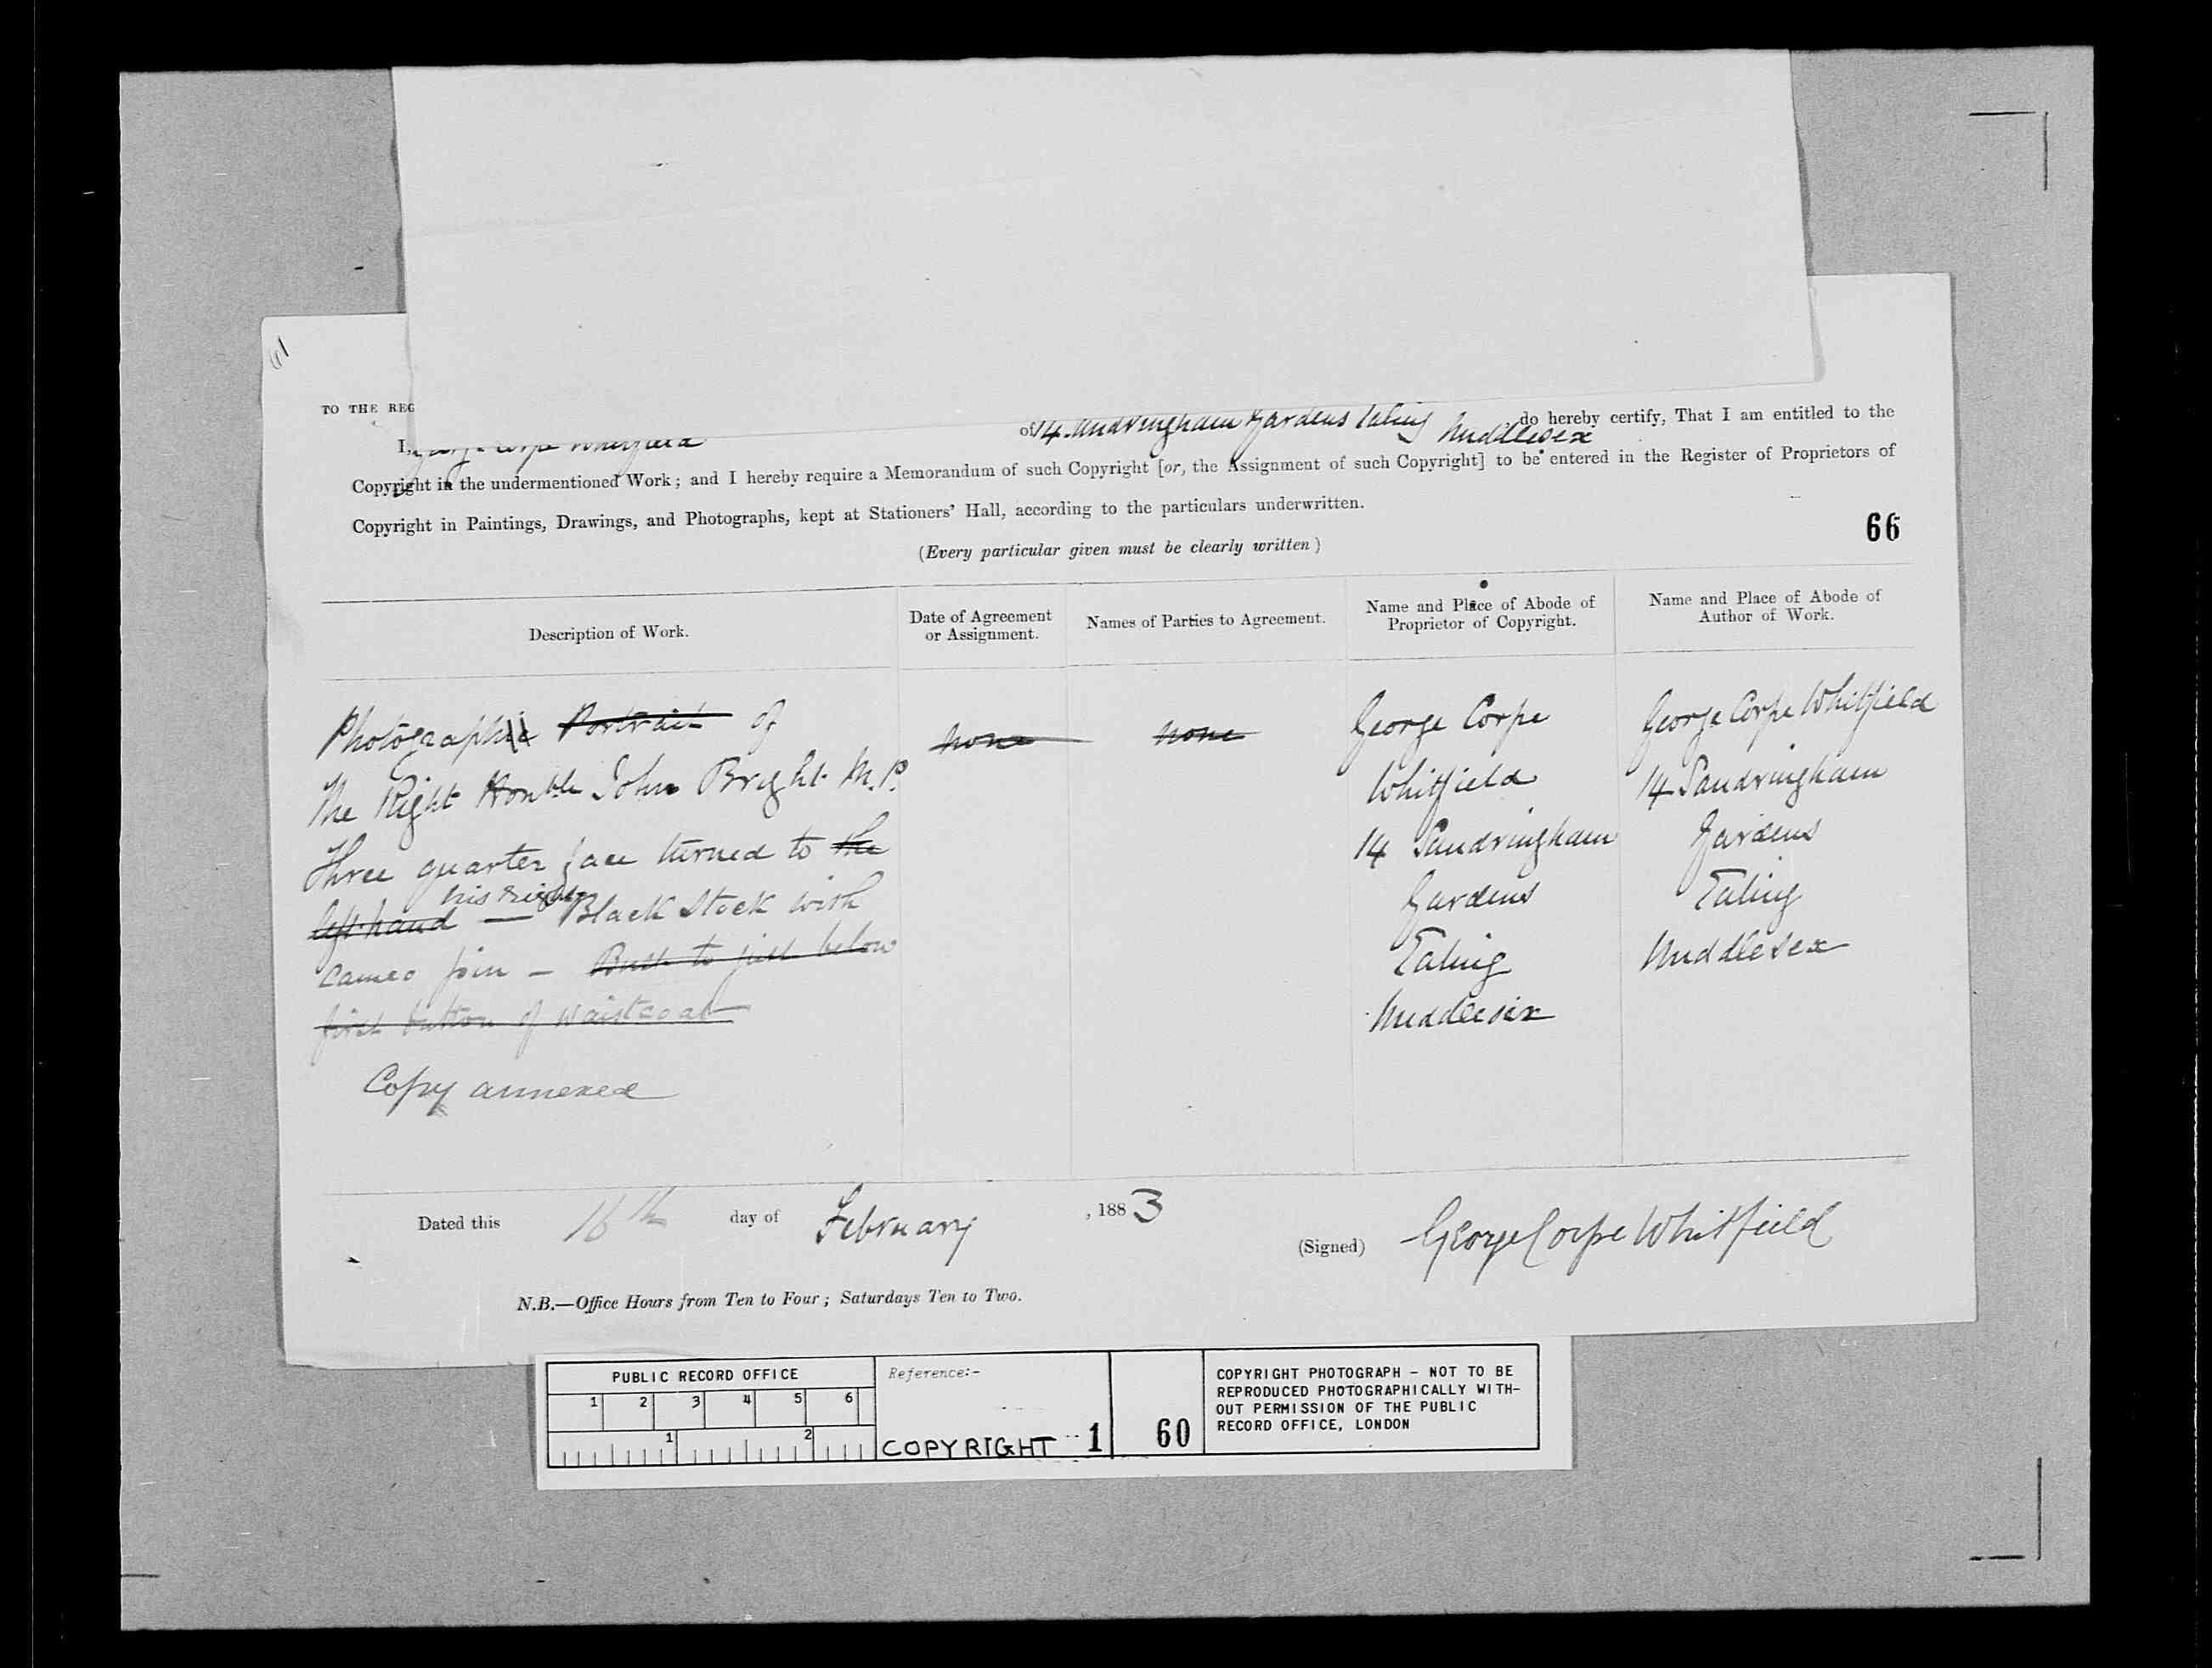 61
TO THE REG
I, George Corpe Whitfield of 14 Sandringham Gardens Ealing Middlesex do hereby certify, That I am entitled to the
Copyright in the undermentioned Work; and I hereby require a Memorandum of such Copyright [or, the Assignment of such Copyright] to be entered in the Register of Proprietors of
Copyright in Paintings, Drawings, and Photographs, kept at Stationers' Hall, according to the particulars underwritten.
66
(Every particular given must be clearly written)
Description of Work.
Date of Agreement
or Assignment.
Names of Parties to Agreement.
Name and Place of Abode of
Proprietor of Copyright.
Name and Place of Abode of
Author of Work.
Photographic Portrait of
The Right Honble John Bright M.P.
Three quarter face turned to the
his right
left hand — Black Stock with
cameo pin — Bust to just below
first button of waistcoat
Copy annexed
none
none
George Corpe
Whitfield
14 Sandringham
Gardens
Ealing
Middlesex
George Corpe Whitfield
14 Sandringham
Gardens
Ealing
Middlesex
Dated this 16th day of February, 1883
(Signed) George Corpe Whitfield
N.B.—Office Hours from Ten to Four; Saturdays Ten to Two.
PUBLIC RECORD OFFICE
1 2 3 4 5 6
1 2
Reference:-
COPYRIGHT 1
60
COPYRIGHT PHOTOGRAPH - NOT TO BE
REPRODUCED PHOTOGRAPHICALLY WITH-
OUT PERMISSION OF THE PUBLIC
RECORD OFFICE, LONDON